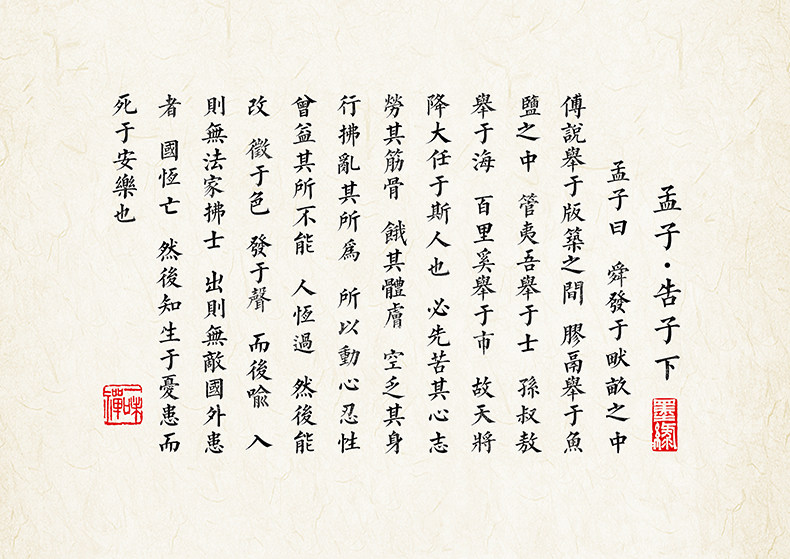 孟子·告子下
墨缘
孟子曰 舜發于畎畝之中
傅說舉于版築之間 膠鬲舉于魚
鹽之中 管夷吾舉于士 孫叔敖
舉于海 百里奚舉于市 故天將
降大任于斯人也 必先苦其心志
勞其筋骨 餓其體膚 空乏其身
行拂亂其所爲 所以動心忍性
曾益其所不能 人恆過 然後能
改 徵于色 發于聲 而後喻 入
則無法家拂士 出則無敵國外患
者 國恆亡 然後知生于憂患而
死于安樂也
一味禪